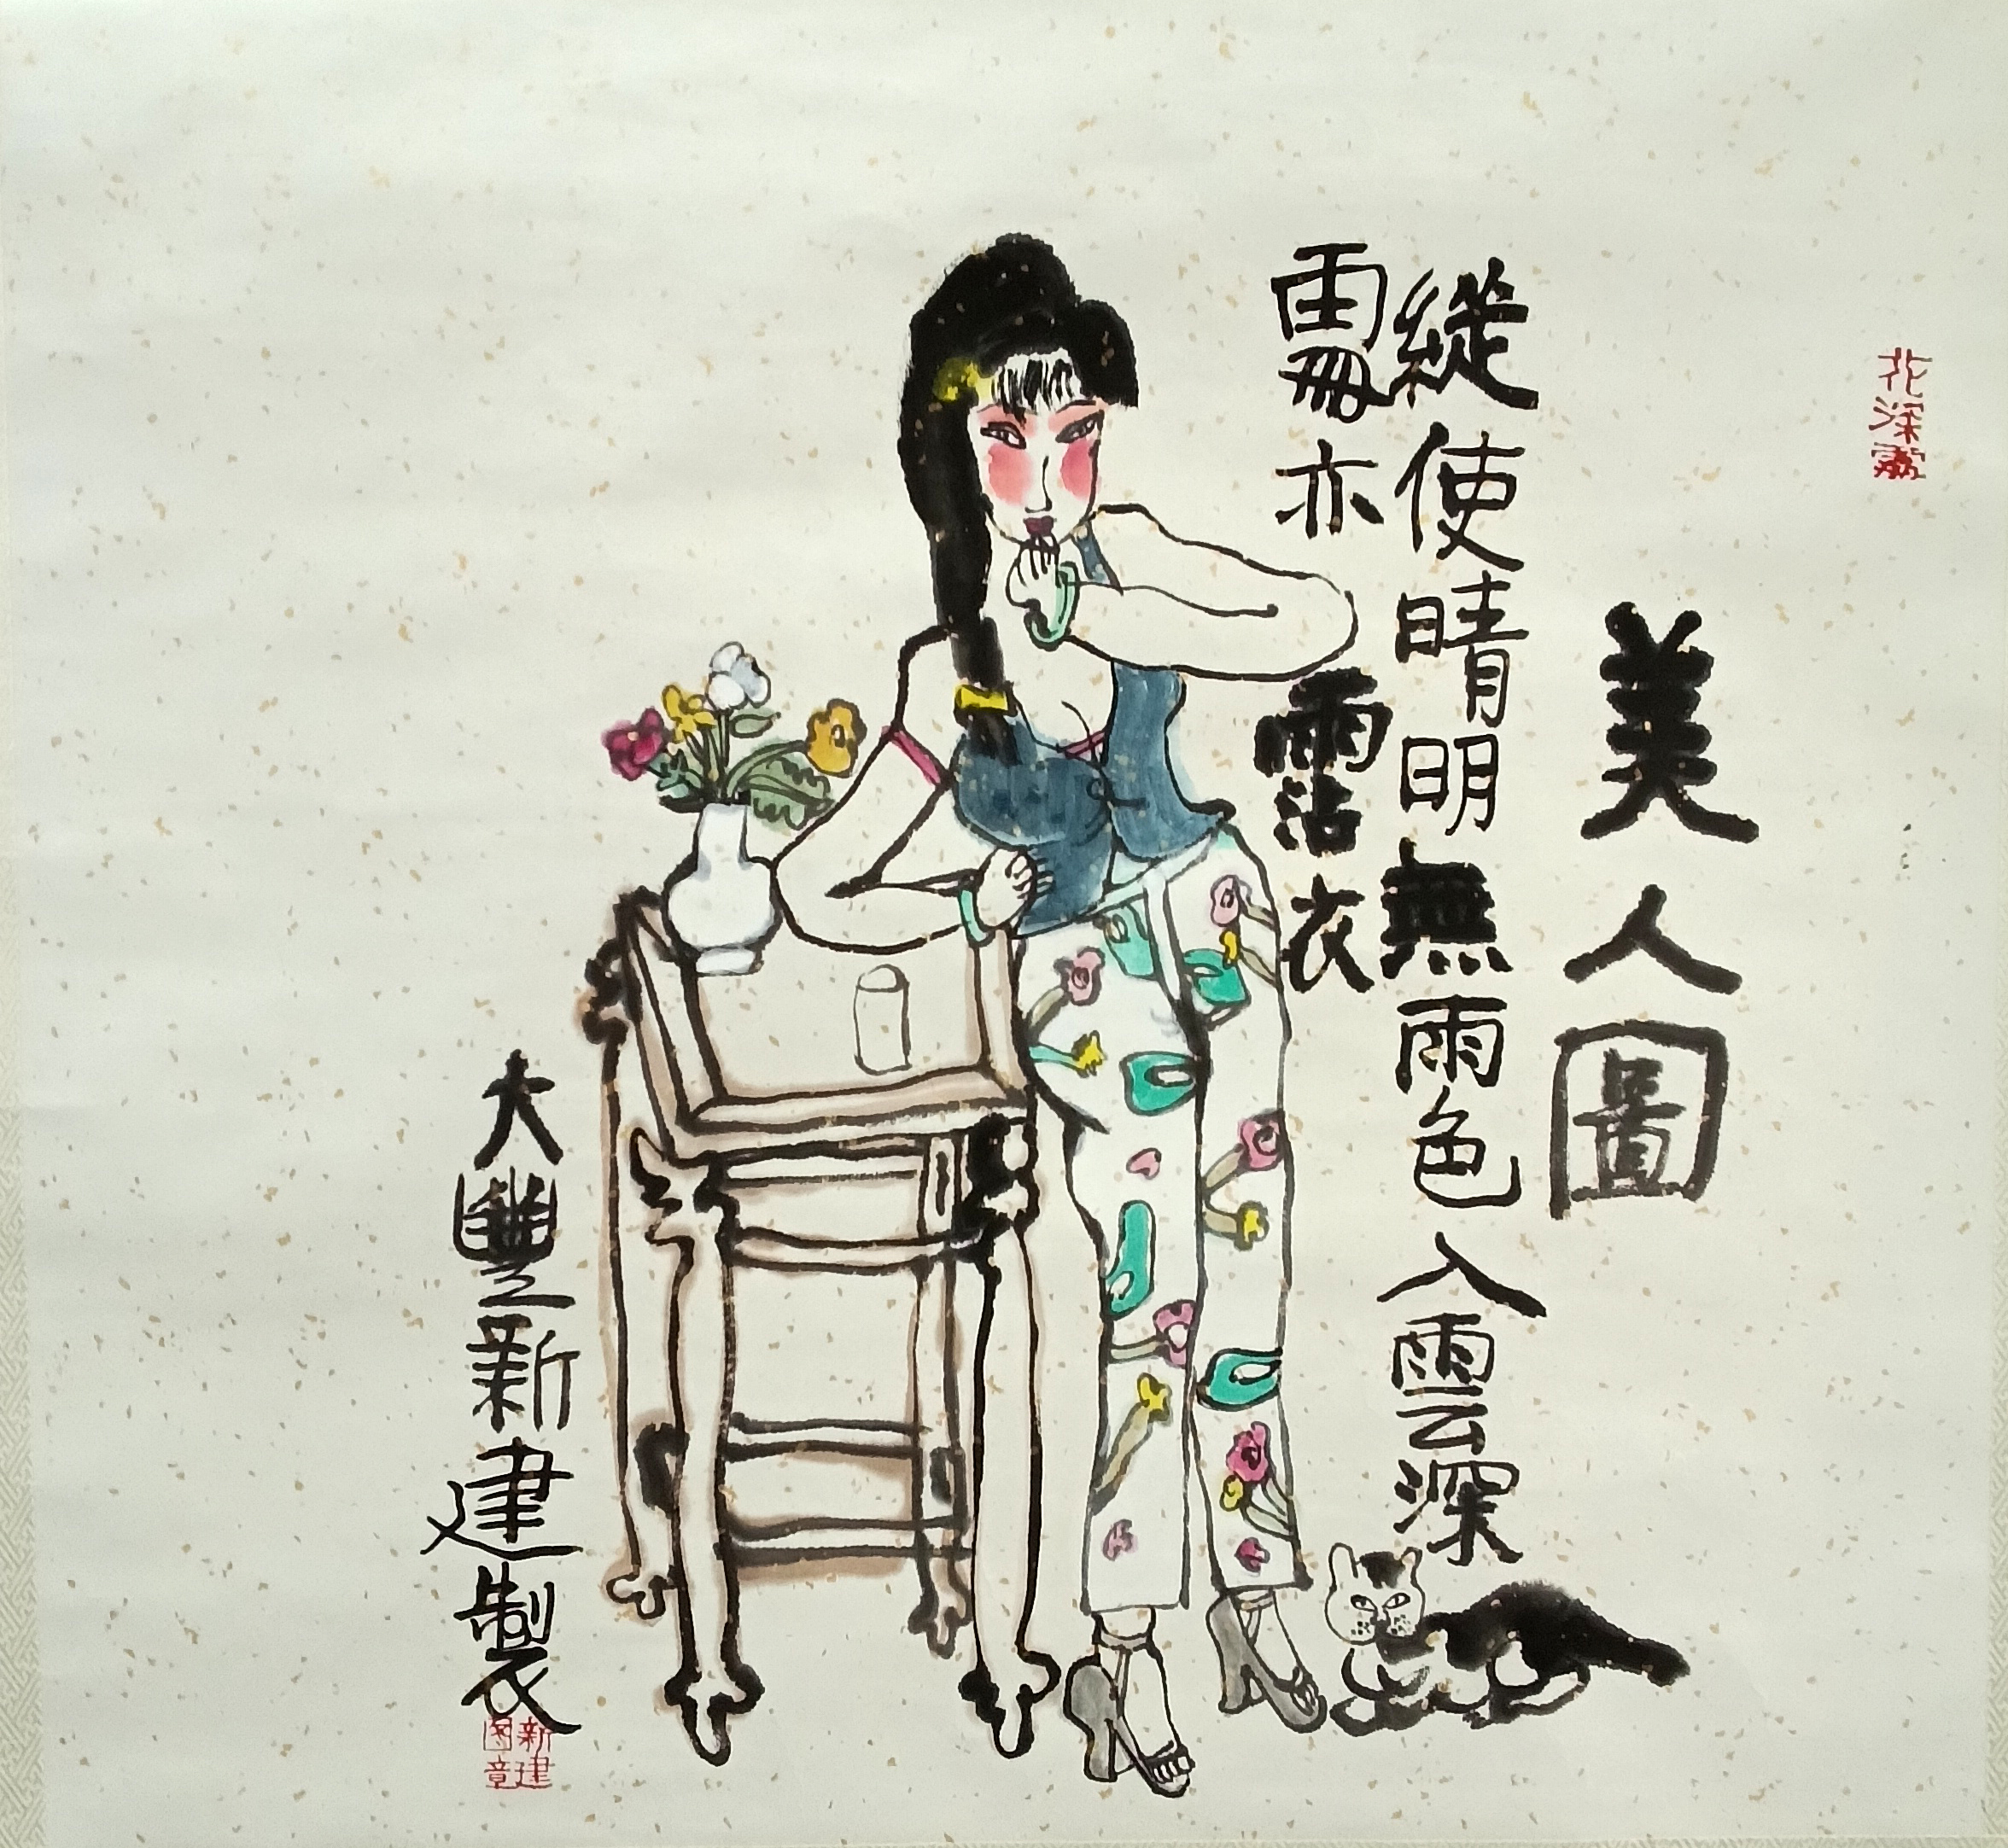 花深處
美人圖
縱使晴明無雨色入雲深
處亦霑衣
大豐新建製
新建
图章